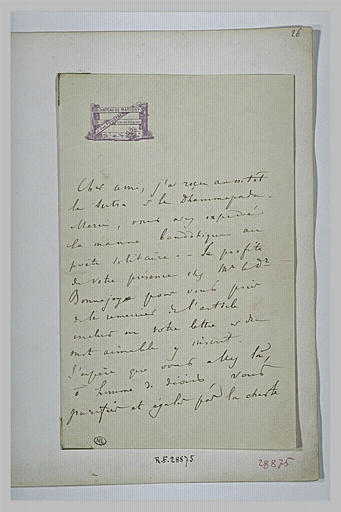 26
CHATEAU DE MARCONY
Cher ami, j'ai reçu aussitôt
le sutra et le Dhammapada.
Merci, vous avez expédié
la manne bouddhique au
poète solitaire. — Je profite
de votre présence chez Mr le Dr
Bonnejoy pour vous prier
de le remercier de l'article
inclus en votre lettre et du
mot aimable y inscrit.
J'espère que vous allez là,
ô homme de désirs vous
purifier et égaler par la chaste
R.F. 28875
28875